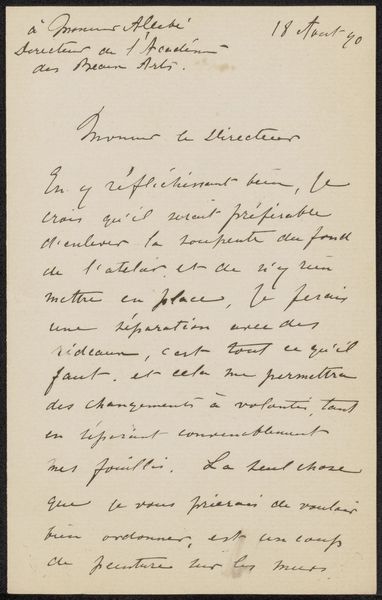 à Monsieur Allebé
18 Aout 90
Directeur de l'Académie
des Beaux Arts.
Monsieur le Directeur
En y réflichissant bien, je
crois qu'il serait préférable
d'enlever la soupente du fond
de l'atelier et de n'y rien
mettre en place, je ferais
une séparation avec des
rideaux, c'est tout ce qu'il
faut. et cela me permettra
des changements à volonté, tout
en séparant convenablement
mes fouillis. La seul chose
que je vous prierais de vouloir
bien ordonner, est un coup
de peinture sur les murs